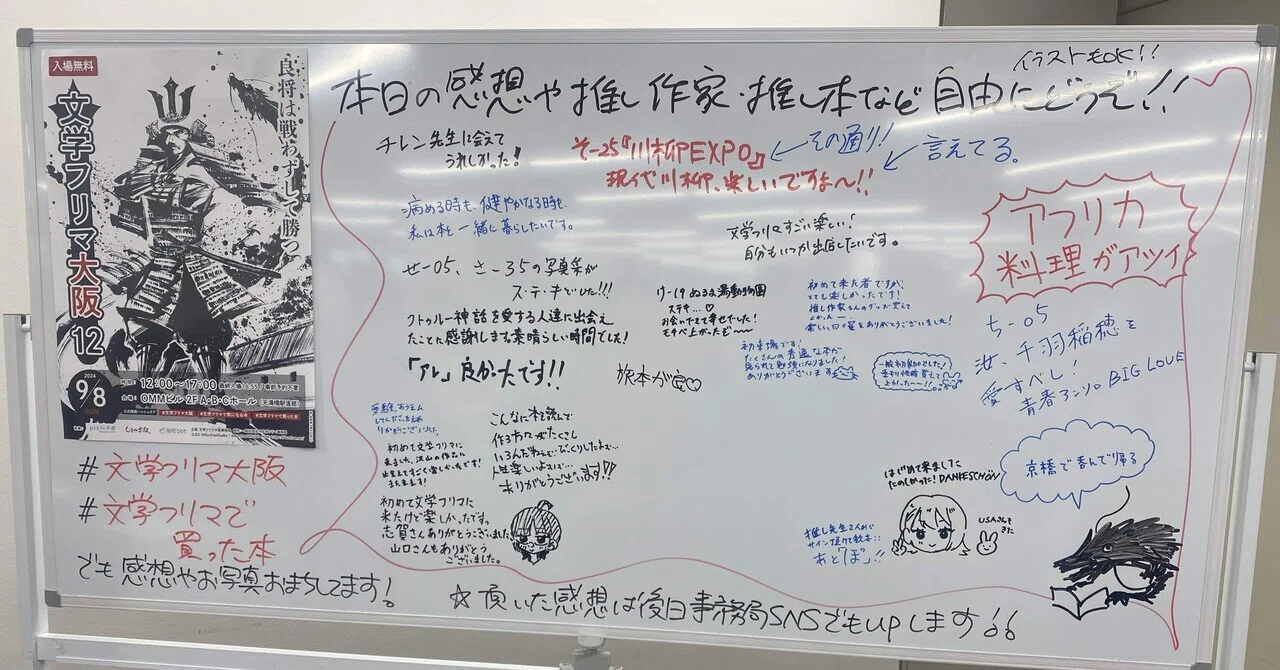 入場無料
文学フリマ大阪12
良将は戦わずして勝つ
2024
9/8
SUN
12:00〜17:00
OMMビル 2F A・B・Cホール
#文学フリマ大阪
#文学フリマで気になる本
#文学フリマで買った本
本日の感想や推し作家・推し本など自由にどうぞ!!
イラストもOK!!
チレン先生に会えて
うれしかった!
そ-25『川柳EXPO』
現代川柳、楽しいですよ〜!!
その通り!
言えてる。
病める時も、健やかなる時も、
私は本と一緒に暮らしたいです。
文学フリマすごい楽しい!
自分もいつか出店したいです。
アフリカ
料理ガアツイ
せ-05、さ-35の写真集が
ス・テ・キでした!!!
け-19 ぬるま湯動物園
ステキ…♡
お会いできて幸せでした!
初めて来た者ですが、
とても楽しかったです!
楽しい日曜をありがとうございました!
クトゥルー神話を愛する人達に出会え
たことに感謝します素晴らしい時間でした!
ち-05
汝、千羽稲穂を
愛すべし!
青春ヲンリロ BIG LOVE
「アレ」良かったです!!
初参加です!
たくさんの素適な本が
見られて勉強になりました!
ありがとうございます
こんなに本を読んで
作る方々がたくさん
ありがとうございます!!
初めて文学フリマに
来ました。沢山の作品に
出会えてすごく楽しかったです!
また来ます!
初めて文学フリマに
来たけど楽しかったです。
志賀さんありがとうございました
山口さんもありがとう
ございました。
はじめて来ました
たのしかった! DANKESCHÖN
USAさんも
きた
京橋で呑んで帰る
#文学フリマ大阪
#文学フリマで
買った本
でも感想やお写真おまちしてます!
☆頂いた感想は後日事務局SNSでもupします!!